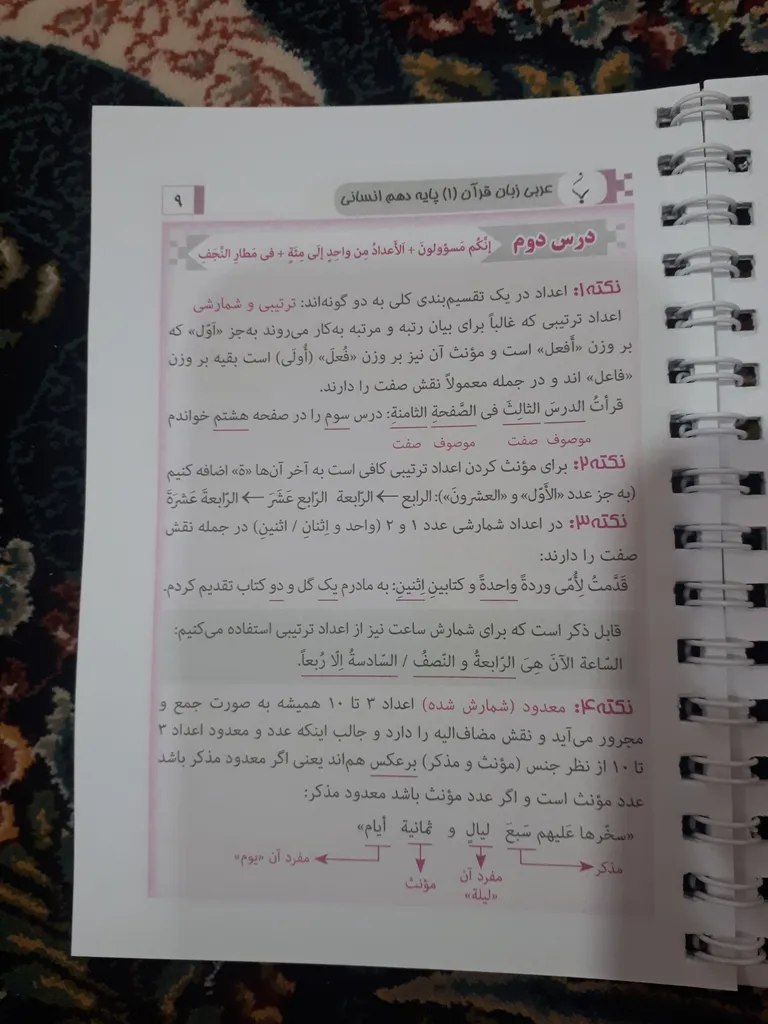 عربی زبان قرآن (۱) پایه دهم انسانی
۹
درس دوم
إنَّکُم مَسؤولونَ + اَلأَعدادُ مِن واحِدٍ إلَی مِئَةٍ + فی مَطارِ النَّجَفِ
نکته۱: اعداد در یک تقسیم‌بندی کلی به دو گونه‌اند: ترتیبی و شمارشی
اعداد ترتیبی که غالباً برای بیان رتبه و مرتبه به‌کار می‌روند به‌جز «آوّل» که
بر وزن «أَفعل» است و مؤنث آن نیز بر وزن «فُعلَ» (أُولَی) است بقیه بر وزن
«فاعل» اند و در جمله معمولاً نقش صفت را دارند.
قرأتُ الدرسَ الثالِثَ فی الصَّفحةِ الثامنةِ: درس سوم را در صفحه هشتم خواندم
موصوف صفت موصوف صفت
نکته۲: برای مؤنث کردن اعداد ترتیبی کافی است به آخر آن‌ها «ة» اضافه کنیم
(به جز عدد «الأَوّل» و «العشرونَ»): الرابع ← الرّابعة الرّابع عَشَرَ ← الرّابعةَ عَشَرَةَ
نکته۳: در اعداد شمارشی عدد ۱ و ۲ (واحد و اِثنانِ / اثنینِ) در جمله نقش
صفت را دارند:
قَدَّمتُ لِأُمّی وردةً واحدةً و کتابینِ اِثنینِ: به مادرم یک گل و دو کتاب تقدیم کردم.
قابل ذکر است که برای شمارش ساعت نیز از اعداد ترتیبی استفاده می‌کنیم:
السّاعة الآنَ هِیَ الرّابعةُ و النّصفُ / السّادسةُ اِلّا رُبعاً.
نکته۴: معدود (شمارش شده) اعداد ۳ تا ۱۰ همیشه به صورت جمع و
مجرور می‌آید و نقش مضاف‌الیه را دارد و جالب اینکه عدد و معدود اعداد ۳
تا ۱۰ از نظر جنس (مؤنث و مذکر) برعکس هم‌اند یعنی اگر معدود مذکر باشد
عدد مؤنث است و اگر عدد مؤنث باشد معدود مذکر:
«سخّرها عَلیهم سَبعَ لیالٍ و ثمانیة أیام»
مذکر
مفرد آن «لیلة»
مؤنث
مفرد آن «یوم»